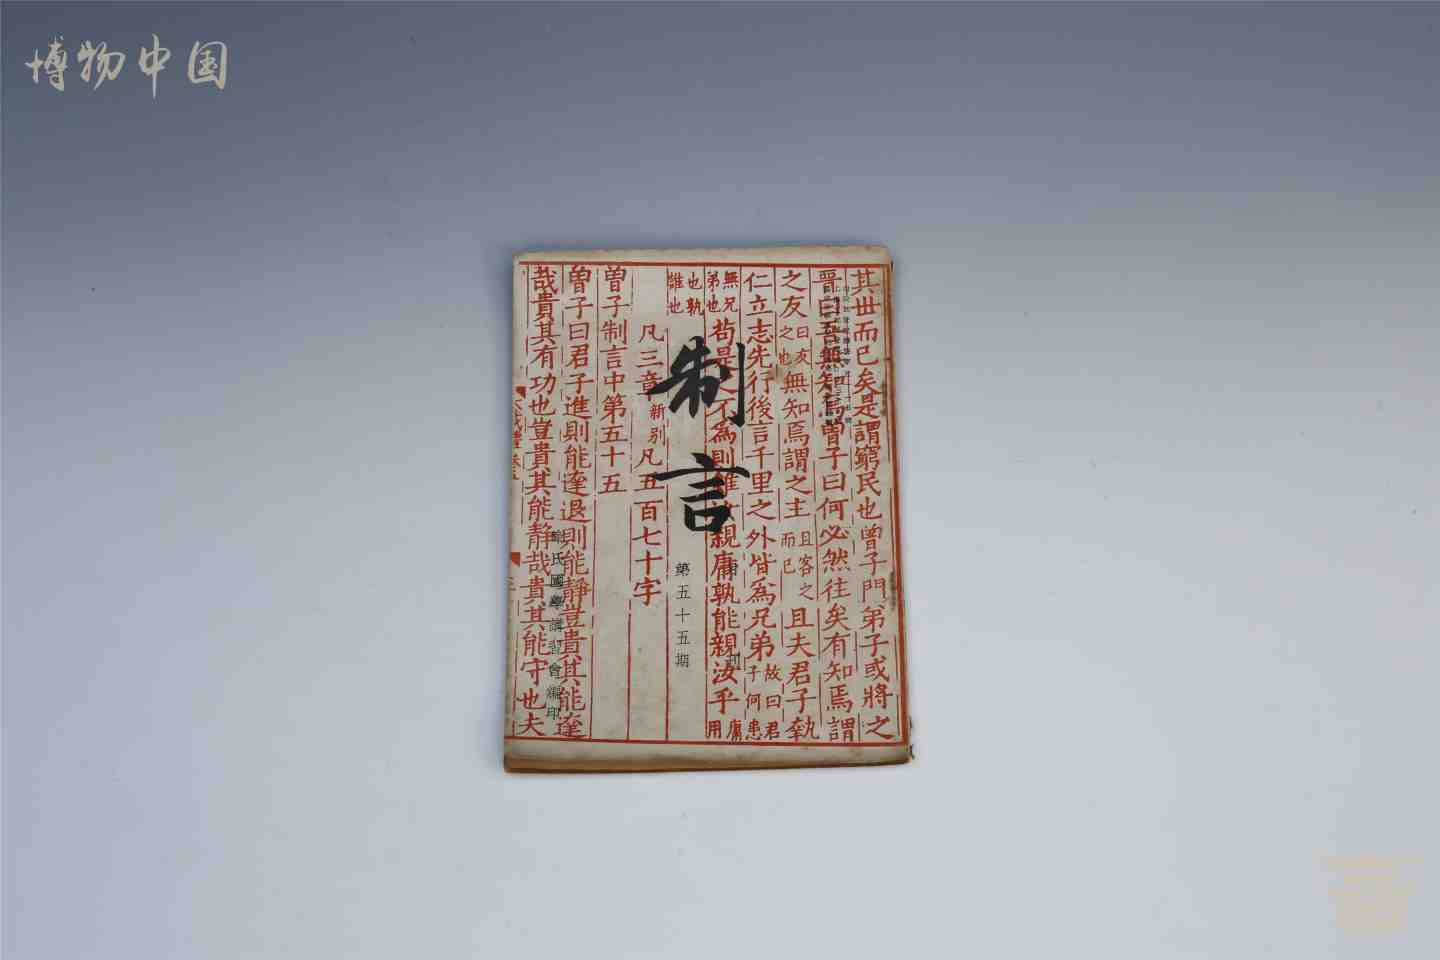 博物中国
制言
第五十五期
章氏國學講習會編印
其世而已矣是謂窮民也曾子門弟子或將之
晉曰吾無知焉曾子曰何必然往矣有知焉謂
之友曰友之也無知焉謂之主且客之而已且夫君子執
仁立志先行後言千里之外皆為兄弟故曰君子何患
無兄弟也苟是之不為則雖汝親庸孰能親汝乎庸用
也孰誰也
凡三章新别凡五百七十字
曾子制言中第五十五
曾子曰君子進則能達退則能靜豈貴其能達
哉貴其有功也豈貴其能靜哉貴其能守也夫